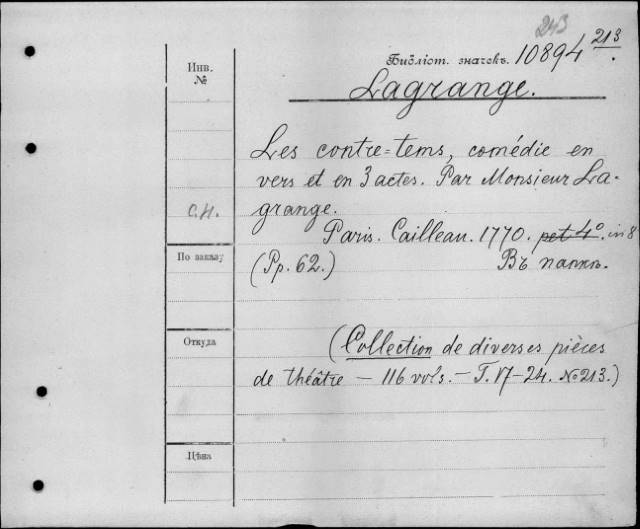 243
Инв.
№
Библіот. значекъ. 10894 213.
Lagrange.
Les contre=tems, comédie en
vers et en 3 actes. Par Monsieur La-
grange.
С.Н.
Paris. Cailleau. 1770. pet 4°. in 8
По заказу
(Pp. 62.) Въ папкѣ.
Откуда
(Collection de diverses pièces
de théâtre — 116 vols. — T. 17-24. № 213.)
Цѣна